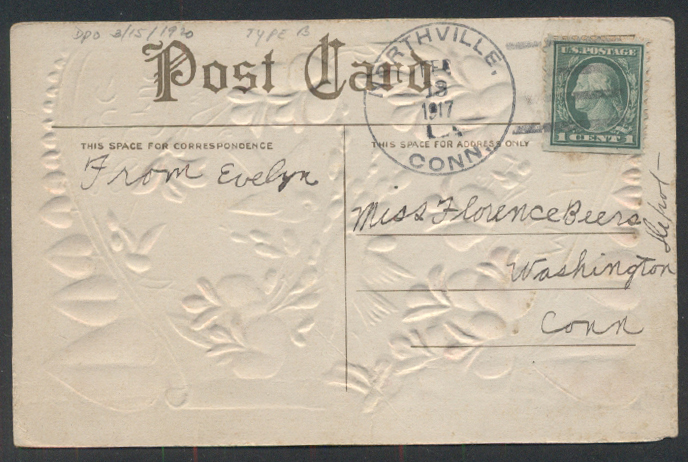 DPO 3/15/1920 TYPE B
Post Card
NORTHVILLE,
FEB
13
1917
CONN.
U.S. POSTAGE
1 CENT 1
THIS SPACE FOR CORRESPONDENCE
THIS SPACE FOR ADDRESS ONLY
From Evelyn
Miss Florence Beers
Washington
Depot
Conn